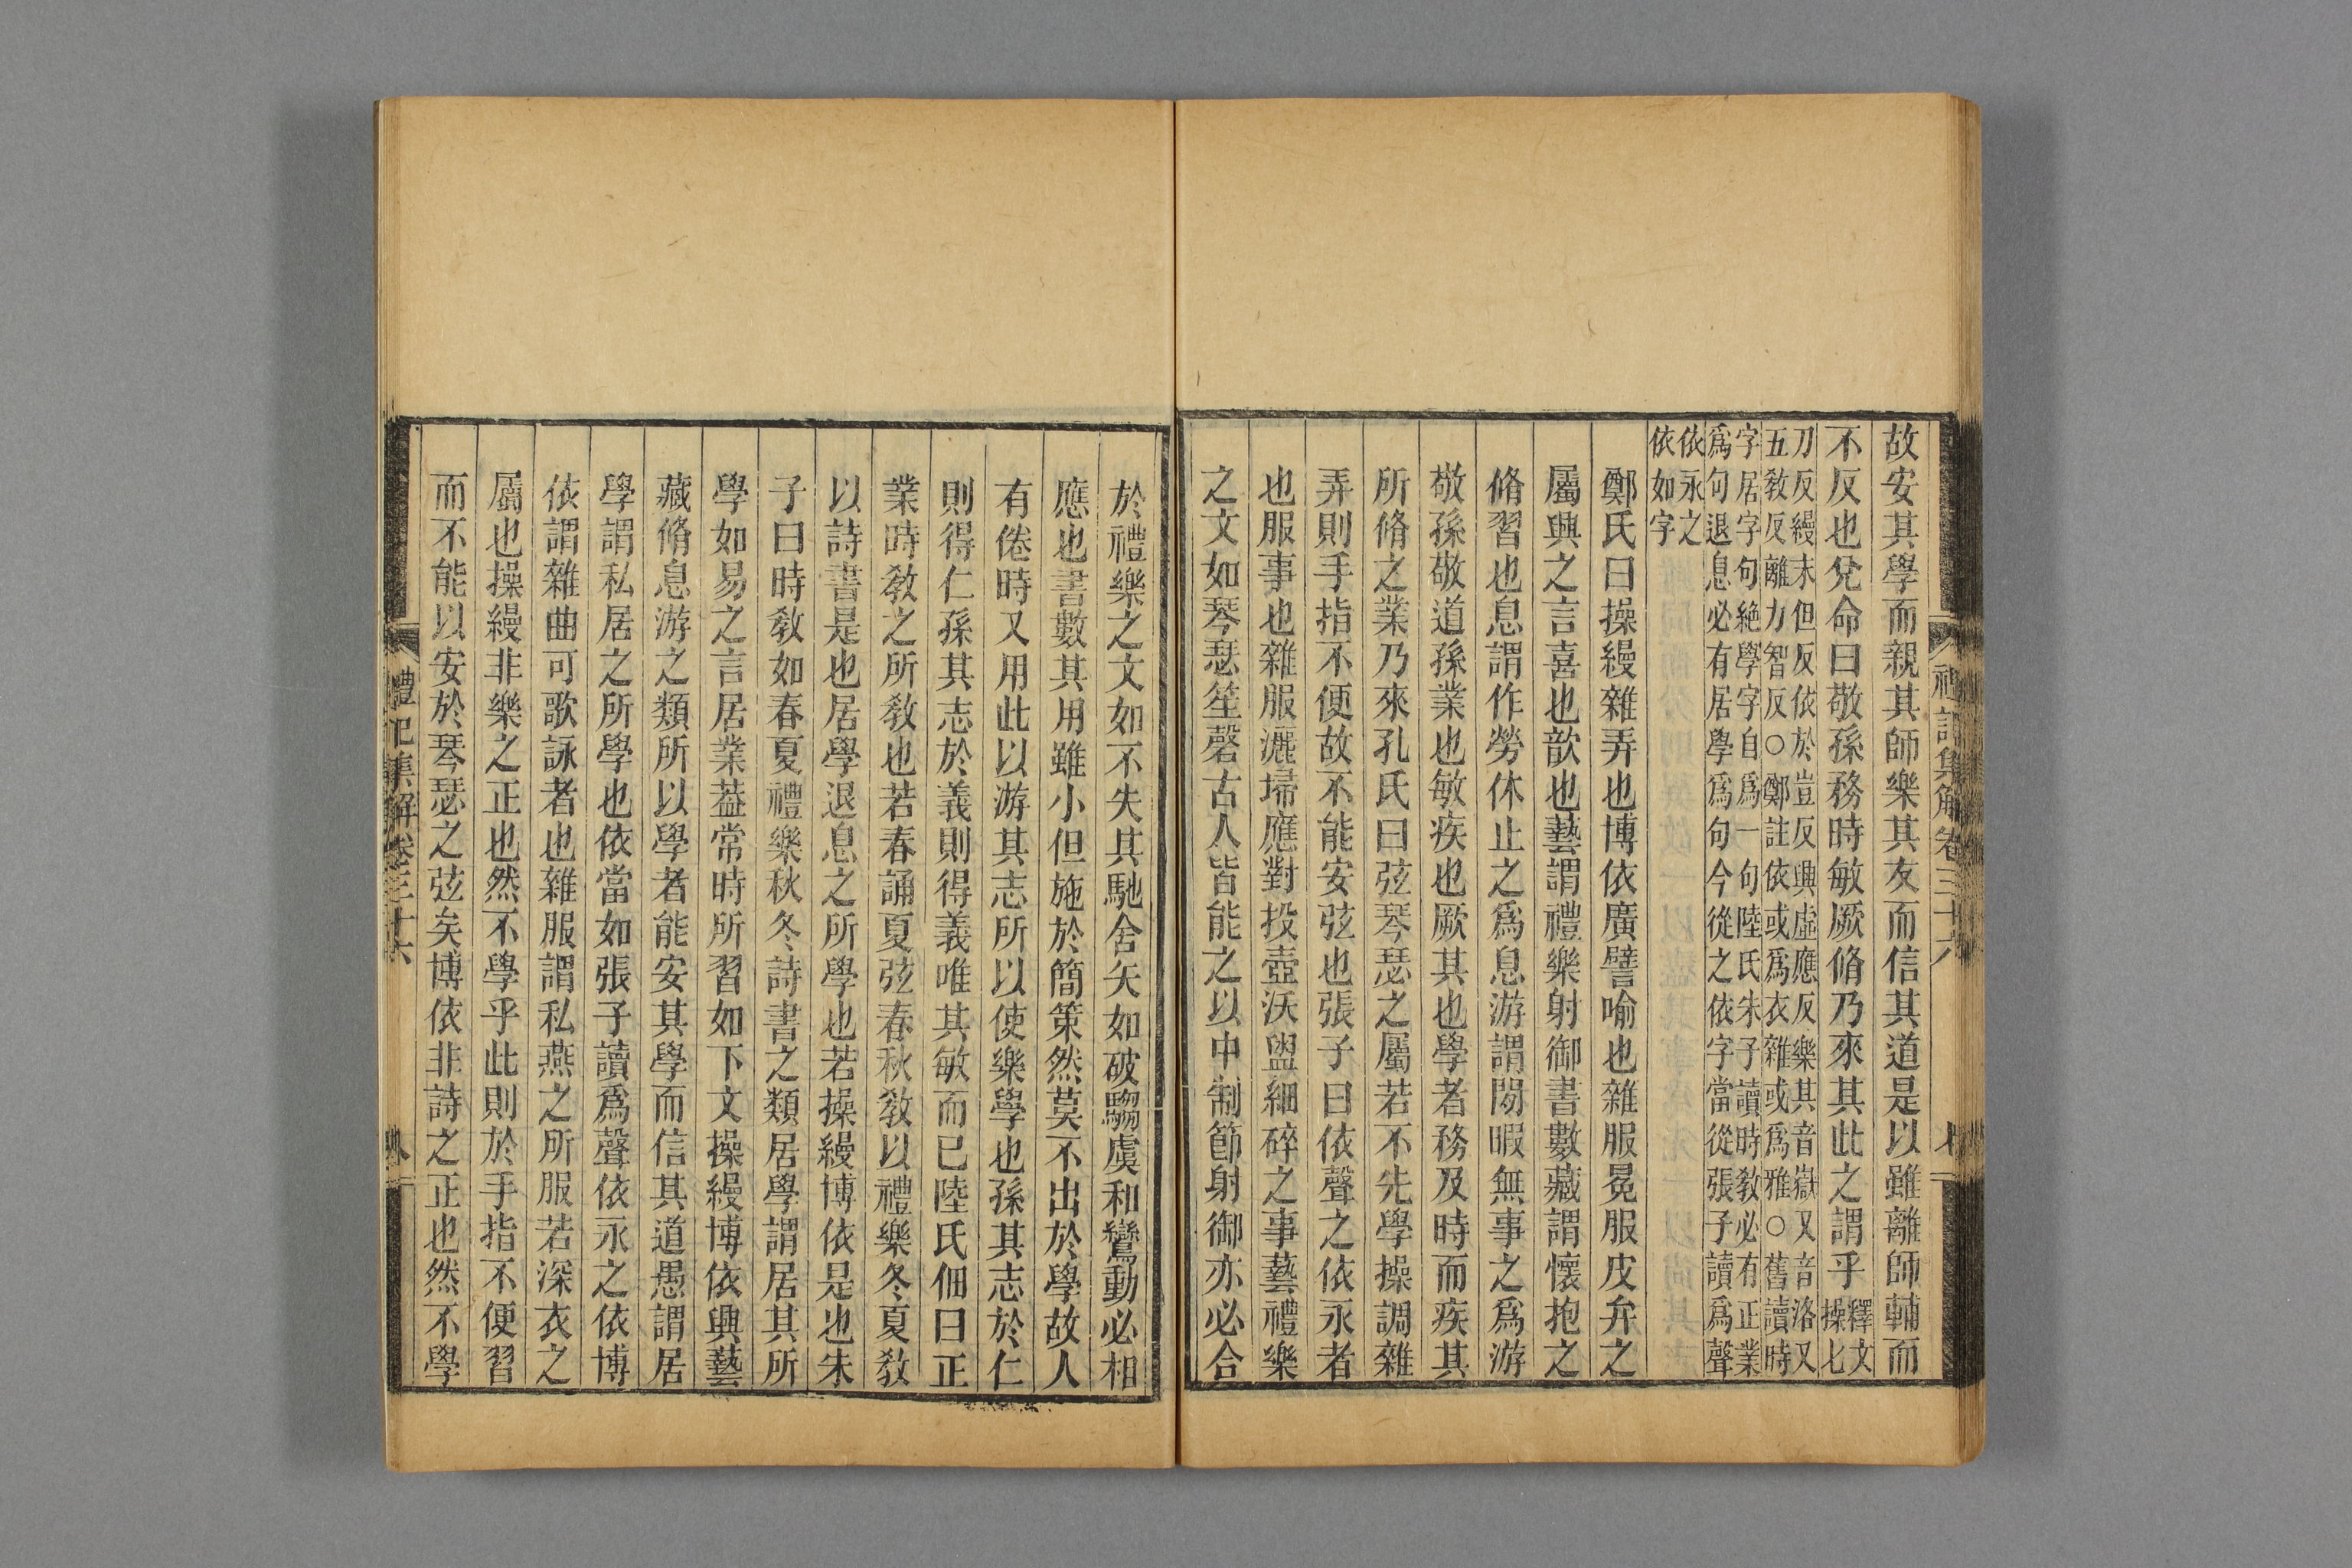 故安其學而親其師樂其友而信其道是以雖離師輔而
不反也兊命曰敬孫務時敏厥脩乃來其此之謂乎釋文操七
刀反縵末但反依於豈反興虛應反樂其音嶽又音洛又
五敎反離力智反○鄭註依或爲衣雜或爲雅○舊讀時
字居字句絶學字自爲一句陸氏朱子讀時敎必有正業
爲句退息必有居學爲句今從之依字當從張子讀爲聲
依永之
依如字
鄭氏曰操縵雜弄也博依廣譬喻也雜服冕服皮弁之
屬興之言喜也歆也藝謂禮樂射御書數藏謂懷抱之
脩習也息謂作勞休止之爲息游謂閒暇無事之爲游
敬孫敬道孫業也敏疾也厥其也學者務及時而疾其
所脩之業乃來孔氏曰弦琴瑟之屬若不先學操調雜
弄則手指不便故不能安弦也張子曰依聲之依永者
也服事也雜服灑埽應對投壺沃盥細碎之事藝禮樂
之文如琴瑟笙磬古人皆能之以中制節射御亦必合
禮記集解卷三十六
於禮樂之文如不失其馳舍矢如破騶虞和鸞動必相
應也書數其用雖小但施於簡策然莫不出於學故人
有倦時又用此以游其志所以使樂學也孫其志於仁
則得仁孫其志於義則得義唯其敏而已陸氏佃曰正
業時敎之所敎也若春誦夏弦春秋敎以禮樂冬夏敎
以詩書是也居學退息之所學也若操縵博依是也朱
子曰時敎如春夏禮樂秋冬詩書之類居學謂居其所
學如易之言居業葢常時所習如下文操縵博依興藝
藏脩息游之類所以學者能安其學而信其道愚謂居
學謂私居之所學也依當如張子讀爲聲依永之依博
依謂雜曲可歌詠者也雜服謂私燕之所服若深衣之
屬也操縵非樂之正也然不學乎此則於手指不便習
而不能以安於琴瑟之弦矣博依非詩之正也然不學
禮記集解卷三十六